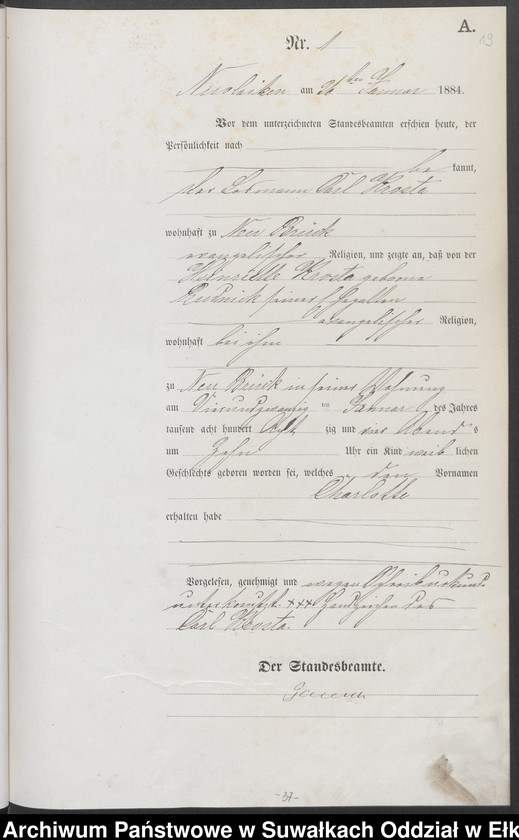 A.
19
Nr. 1
am 26ten Januar 1884.
Vor dem unterzeichneten Standesbeamten erschien heute, der
Persönlichkeit nach
be kannt,
der Losmann Carl Krosta
wohnhaft zu Neu Bruick
evangelischer Religion, und zeigte an, daß von der
Henriette Krosta geborne
Rudnick seiner Ehegattin
evangelischer Religion,
wohnhaft bei ihm
zu Neu Bruick in seiner Wohnung
am Vierundzwanzig ten Januar des Jahres
tausend acht hundert Acht zig und vier Abend s
um Zehn Uhr ein Kind weib lichen
Geschlechts geboren worden sei, welches den Vornamen
Charlotte
erhalten habe
Vorgelesen, genehmigt und wegen Schreibensunkunde
unterkreuzt. +++ Handzeichen des
Carl Krosta.
Der Standesbeamte.
-37-
Archiwum Państwowe w Suwałkach Oddział w Ełk